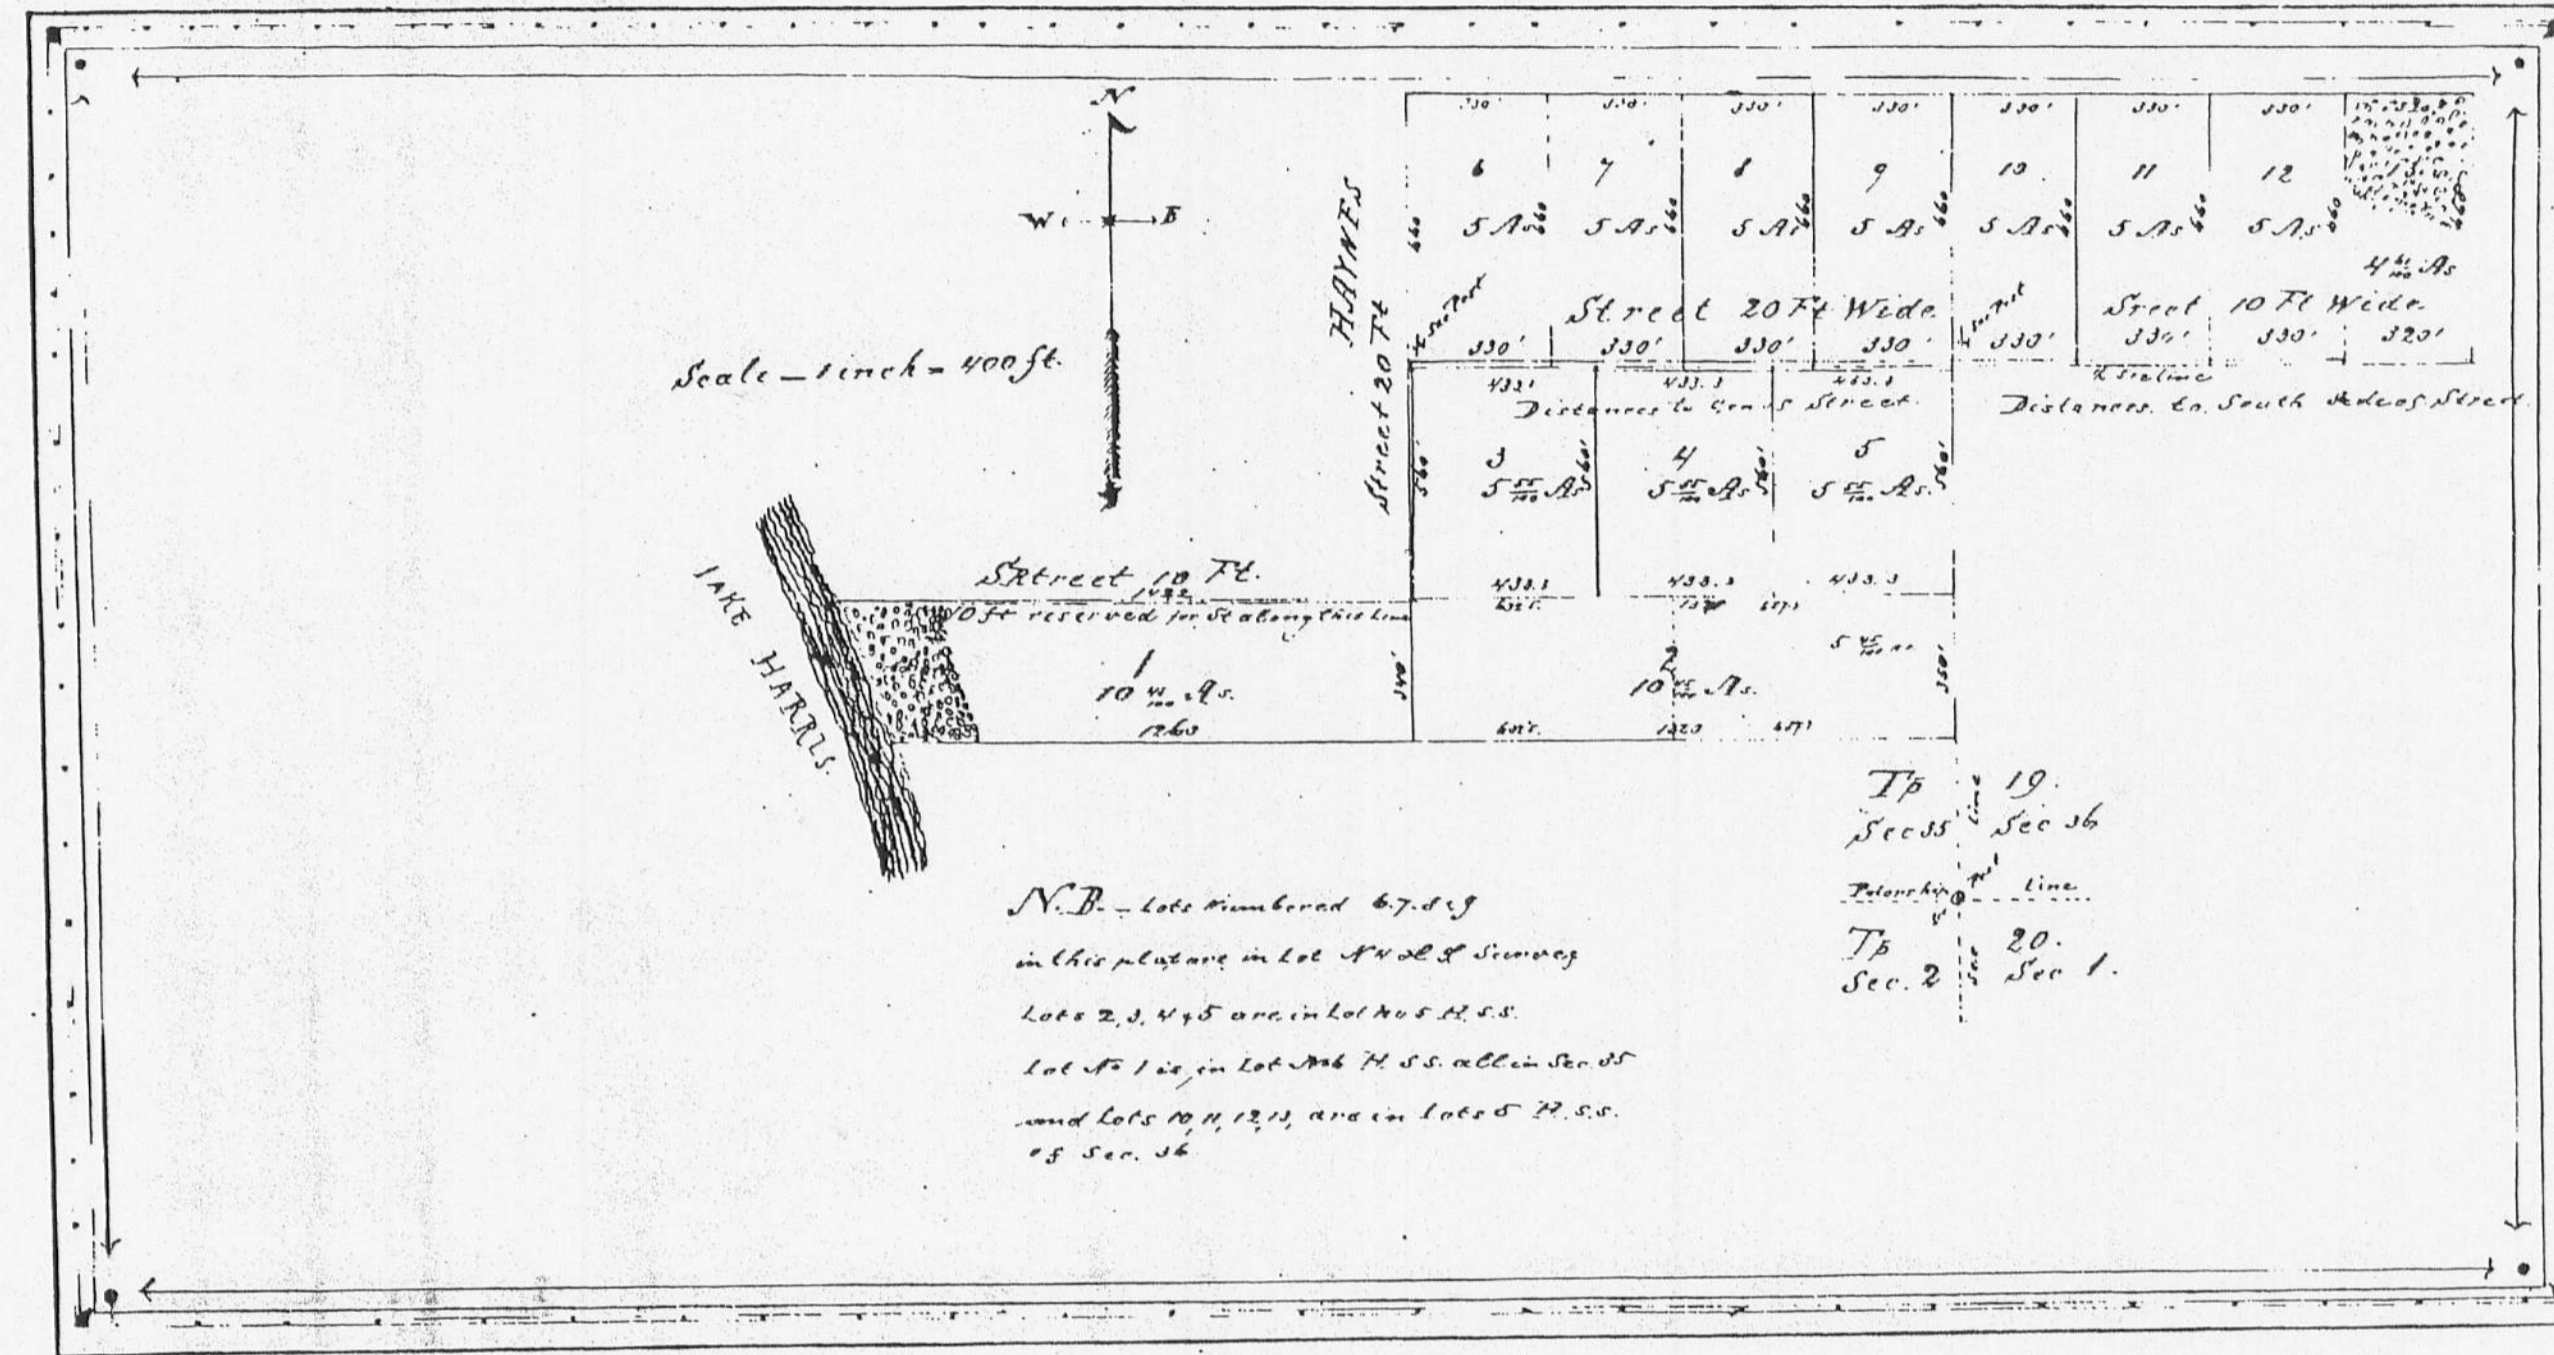 N
W E
Scale – 1 inch = 400 ft.
HAYNES
Street 20 Ft
330' 330' 330' 330' 330' 330' 330' 320'
6 7 8 9 10 11 12 13
660 5 As 660 5 As 660 5 As 660 5 As 660 5 As 660 5 As 660 5 As 660 660
4 61/100 As
Street 20 Ft Wide.
Sreet 10 Ft Wide.
330' 330' 330' 330' 330' 330' 330' 320'
433' 433.3 433.3
Distances to Street.
Distances to South side of Street
3 4 5
560' 5 55/100 As 560' 5 55/100 As 560' 5 55/100 As. 560'
433.3 433.3 433.3
LAKE HARRIS.
SRtreet 10 Ft.
1422
10 ft reserved for St along this Line
1
10 As.
1260
340'
2
10 45/100 As.
5 45/100
350'
1323
Tp 19.
Sec 35 line Sec 36
Township line
Tp 20.
Sec. 2 Sec 1.
N.B. – Lots Numbered 6.7.8 & 9
in this plat are in Lot Survey
Lots 2, 3, 4 & 5 are in Lot No 5 H.S.S.
Lot No 1 is in Lot No 6 H.S.S. all in Sec 35
and Lots 10, 11, 12, 13, are in Lots 5 H.S.S.
of Sec. 36